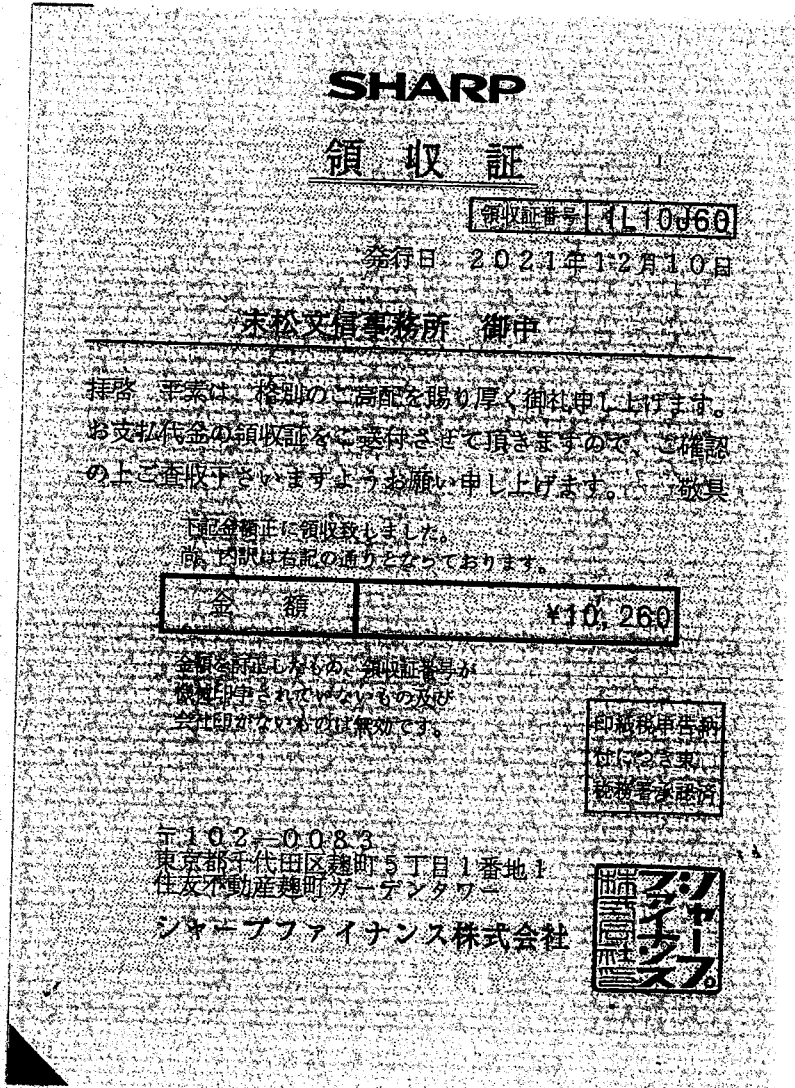 SHARP
領収証
領収証番号 1L10J60
発行日 2021年12月10日
末松文信事務所 御中
拝啓 平素は、格別のご高配を賜り厚く御礼申し上げます。
お支払代金の領収証をご送付させて頂きますので、ご確認
の上ご査収下さいますようお願い申し上げます。 敬具
下記金額正に領収致しました。
尚、内訳は右記の通りとなっております。
金額 ¥10,260
金額を訂正したもの、領収証番号が
機械印字されていないもの及び
会社印がないものは無効です。
印紙税申告納
付につき東
税務署承認済
〒102-0083
東京都千代田区麹町5丁目1番地1
住友不動産麹町ガーデンタワー
シャープファイナンス株式会社
シャープ
ファイナンス
株式会社